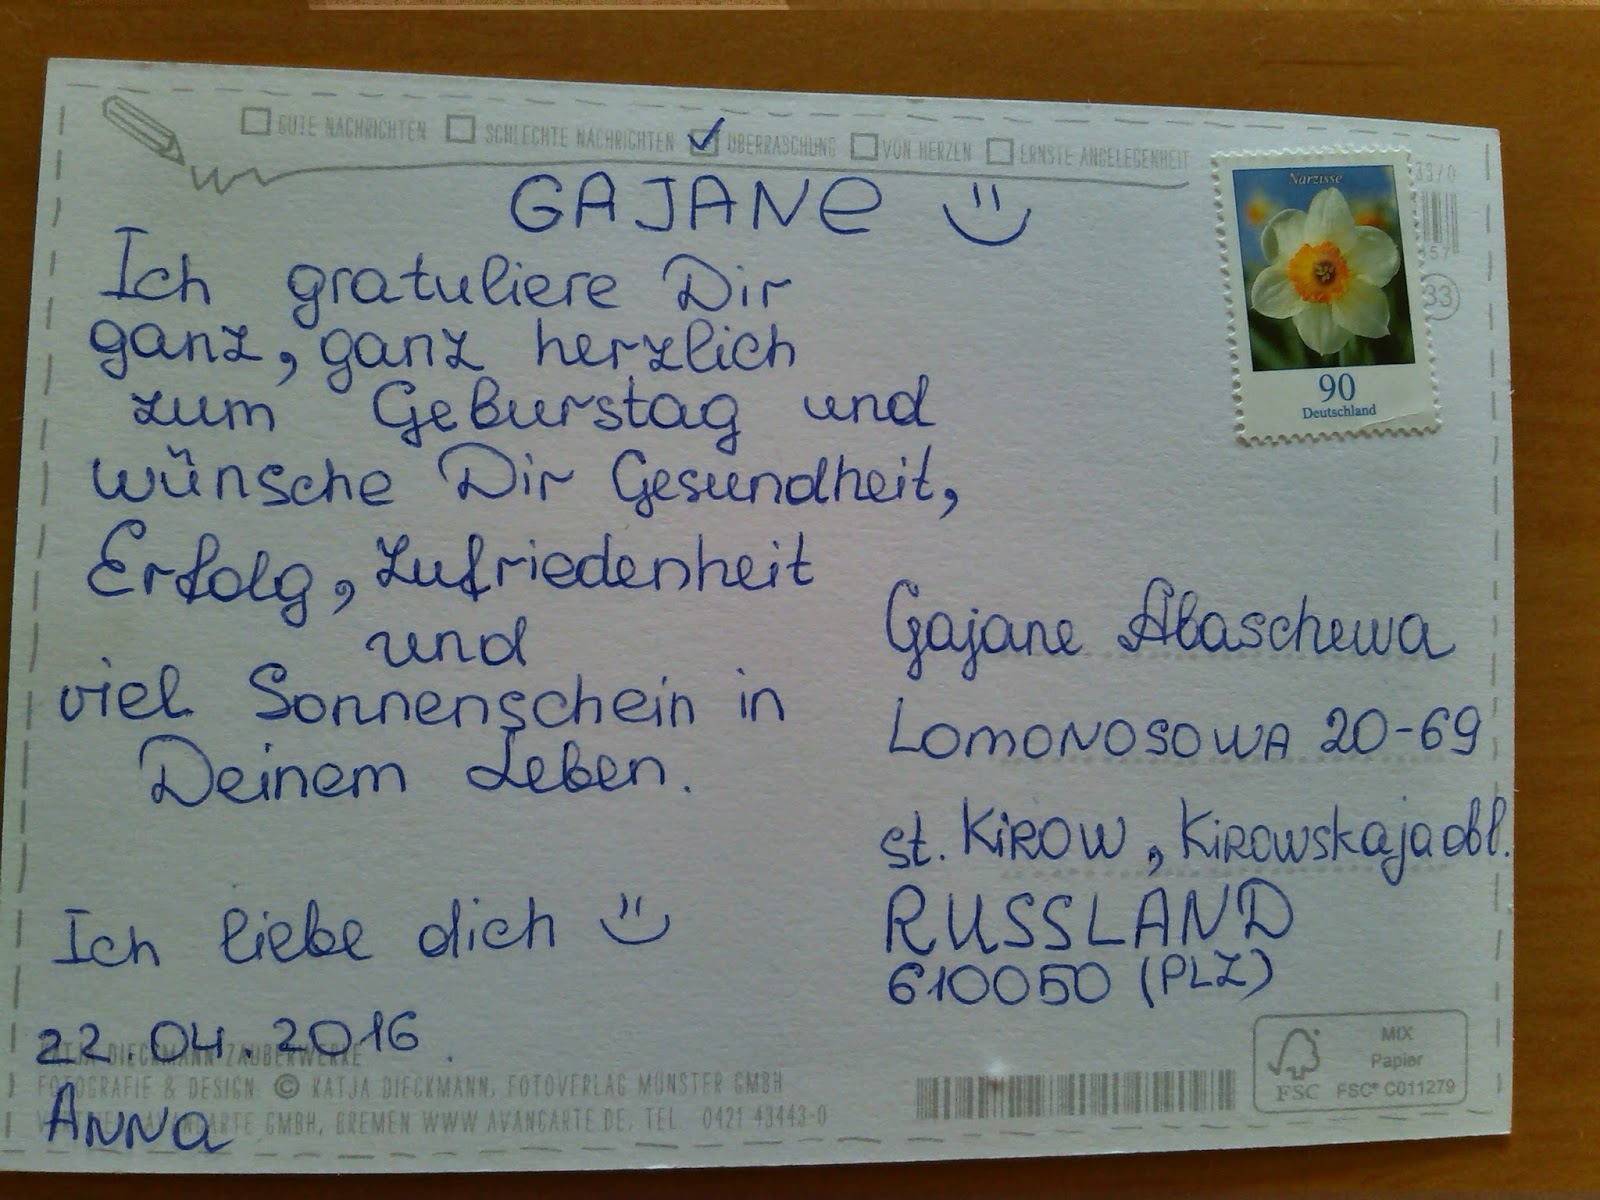 GUTE NACHRICHTEN SCHLECHTE NACHRICHTEN ÜBERRASCHUNG VON HERZEN ERNSTE ANGELEGENHEIT
GAJANE
Ich gratuliere Dir
ganz, ganz herzlich
zum Geburstag und
wünsche Dir Gesundheit,
Erfolg, Zufriedenheit
und
viel Sonnenschein in
Deinem Leben.
Ich liebe dich
22.04.2016.
Anna
Narzisse
90
Deutschland
33
Gajane Abaschewa
Lomonosowa 20-69
st. Kirow, Kirowskaja obl.
RUSSLAND
610050 (PLZ)
KATJA DIECKMANN ZAUBERWERKE
FOTOGRAFIE & DESIGN © KATJA DIECKMANN, FOTOVERLAG MÜNSTER GMBH
GMBH, BREMEN WWW.AVANCARTE.DE, TEL. 0421 43443-0
MIX
Papier
FSC
FSC® C011279